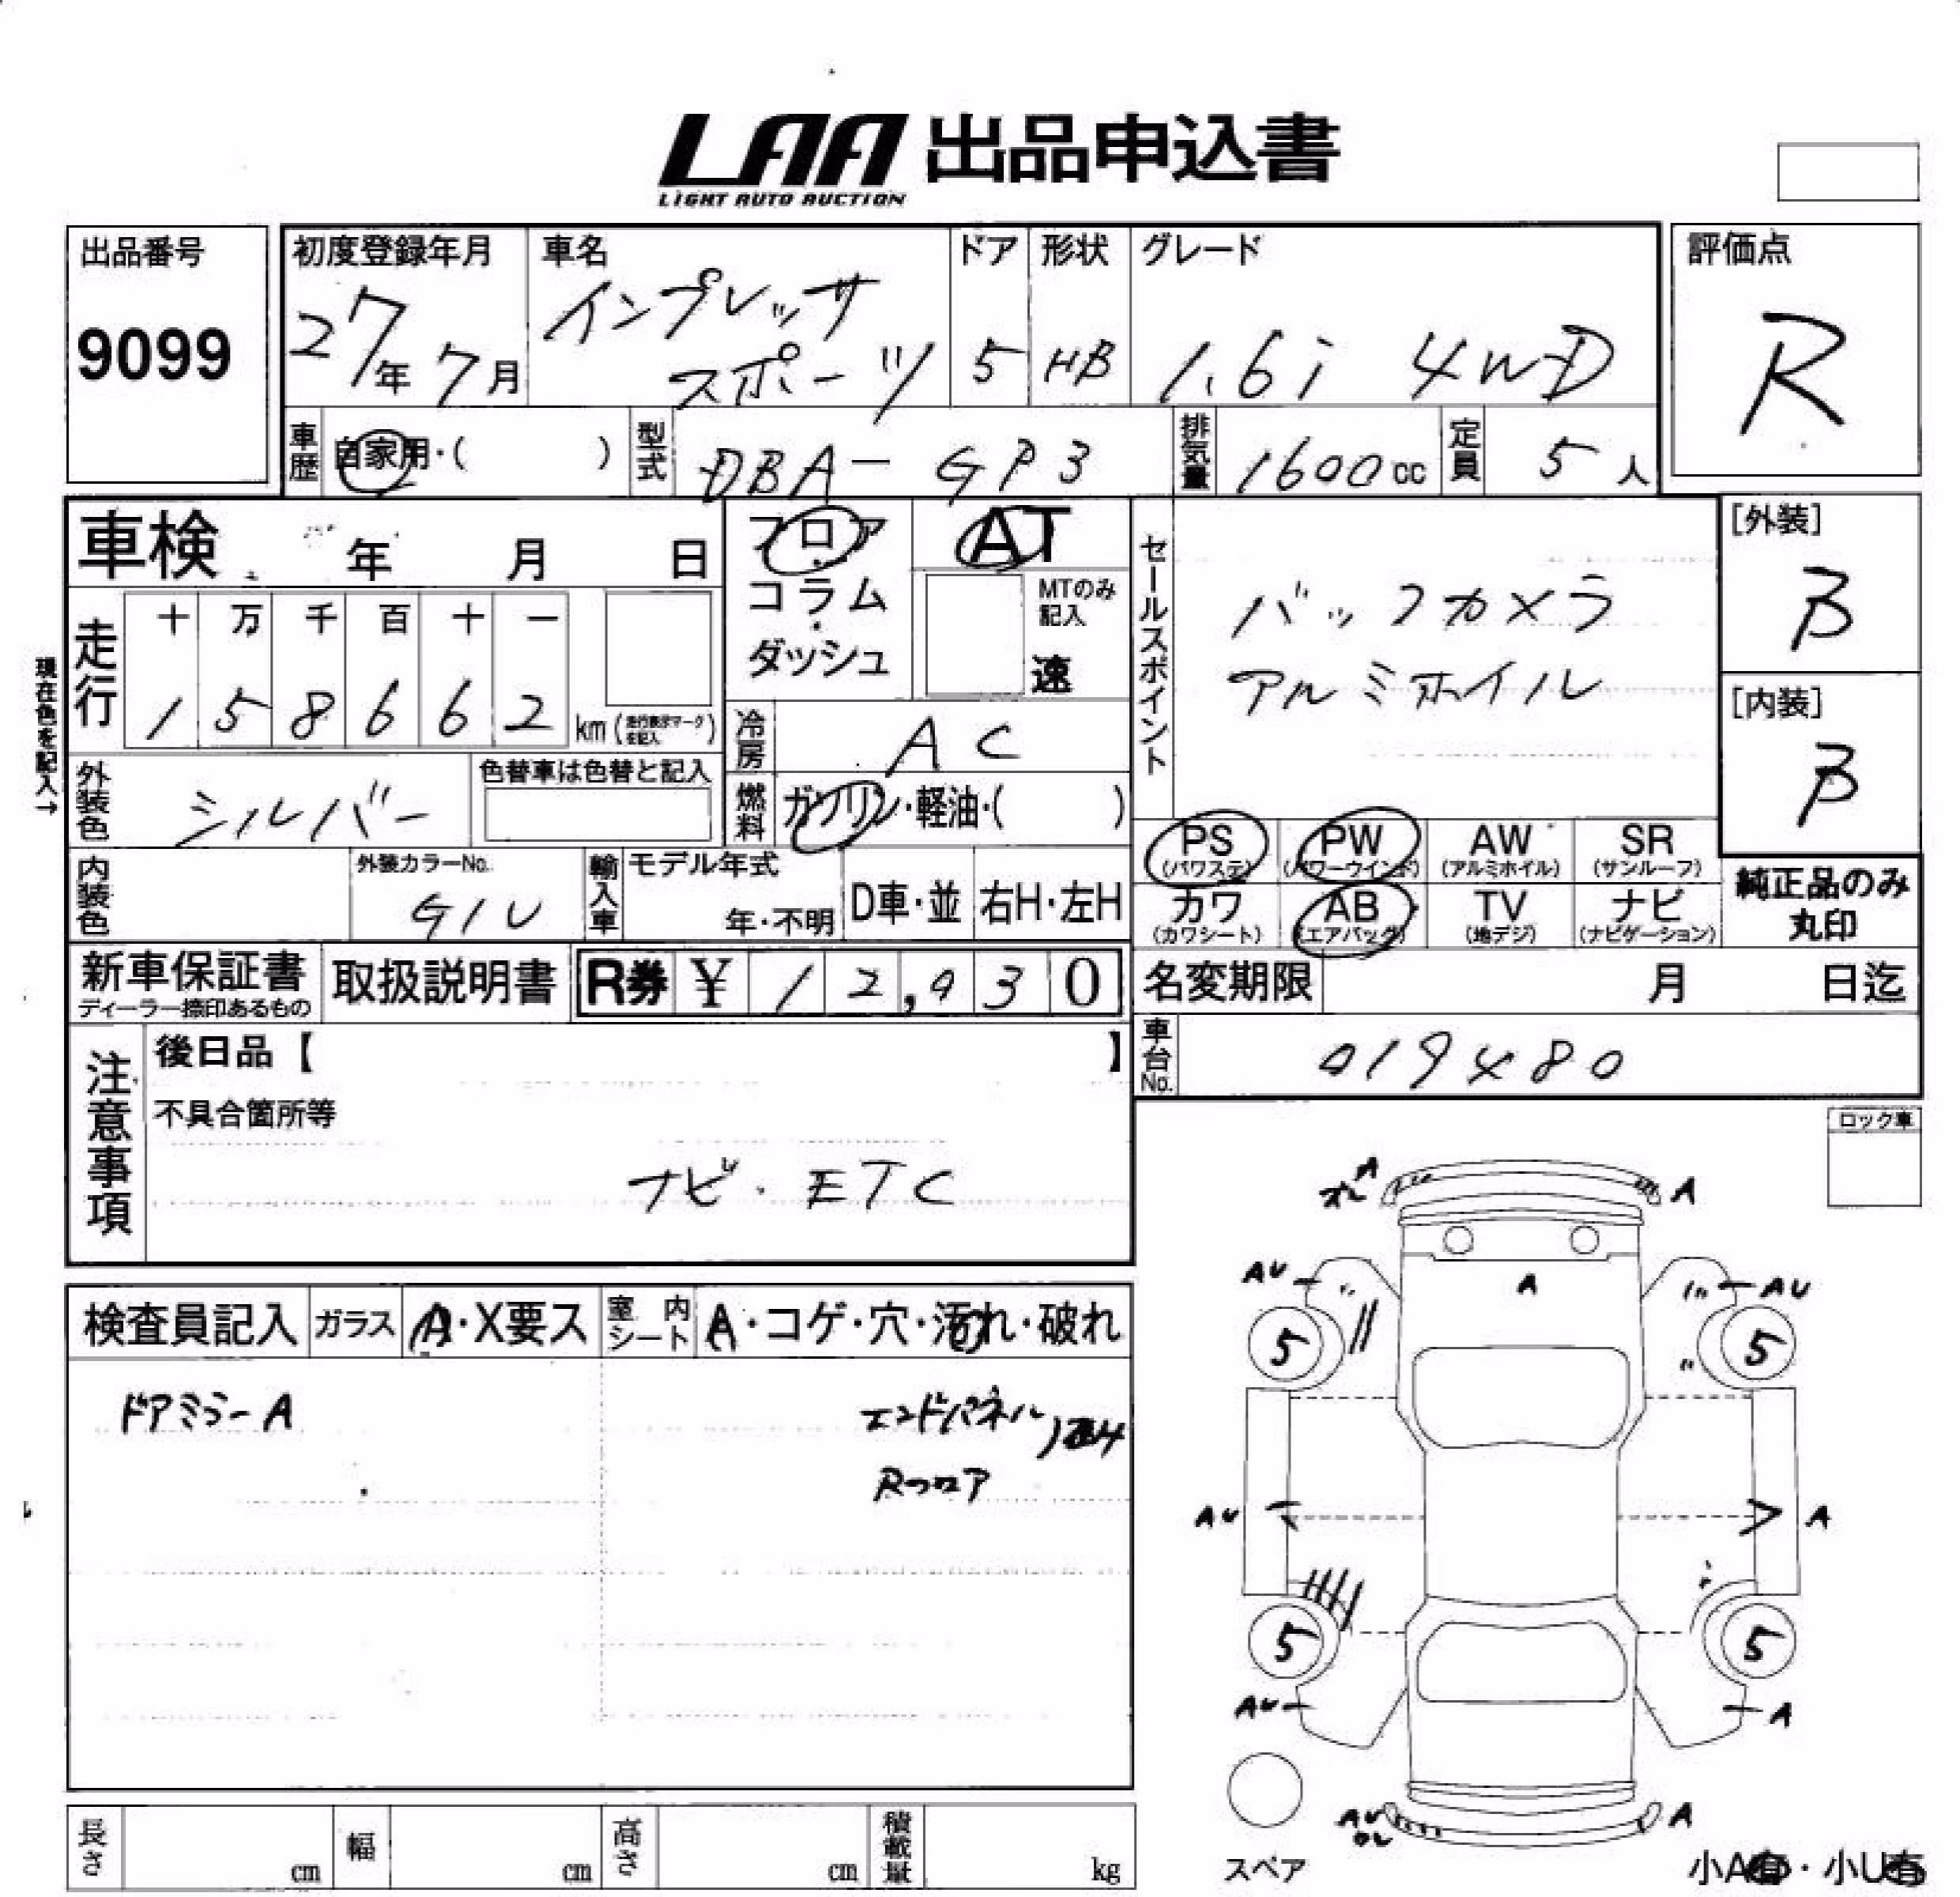 LAA 出品申込書
LIGHT AUTO AUCTION
出品番号
9099
初度登録年月
27年 7月
車名
インプレッサ
スポーツ
ドア
5
形状
HB
グレード
1.6i 4WD
評価点
R
車歴
自家用・( )
型式
DBA-GP3
排気量
1600cc
定員
5人
車検 年 月 日
現在色を記入→
走行
十 万 千 百 十 一
1 5 8 6 6 2 km(走行表示マークを記入)
フロア
・
コラム
・
ダッシュ
AT
MTのみ
記入
速
冷房
AC
燃料
ガソリン・軽油・( )
外装色
シルバー
色替車は色替と記入
内装色
外装カラーNo.
G1U
輸入車
モデル年式
年・不明
D車・並
右H・左H
セールスポイント
バックカメラ
アルミホイル
[外装]
B
[内装]
B
PS PW AW SR
(パワステ) (パワーウインド) (アルミホイル) (サンルーフ)
カワ AB TV ナビ
(カワシート) (エアバッグ) (地デジ) (ナビゲーション)
純正品のみ
丸印
新車保証書
ディーラー捺印あるもの
取扱説明書
R券 ¥ 12,930
名変期限 月 日迄
車台No.
019480
注意事項
後日品【 】
不具合箇所等
ナビ・ETC
ロック車
検査員記入
ガラス
A・X要ス
室内シート
A・コゲ・穴・汚れ・破れ
ドアミラーA
エンドパネル
Rフロア
A
A
AU
A
AU
5
5
AU
A
5
5
AU
A
AU
A
スペア
小A有・小U有
長さ cm
幅 cm
高さ cm
積載量 kg